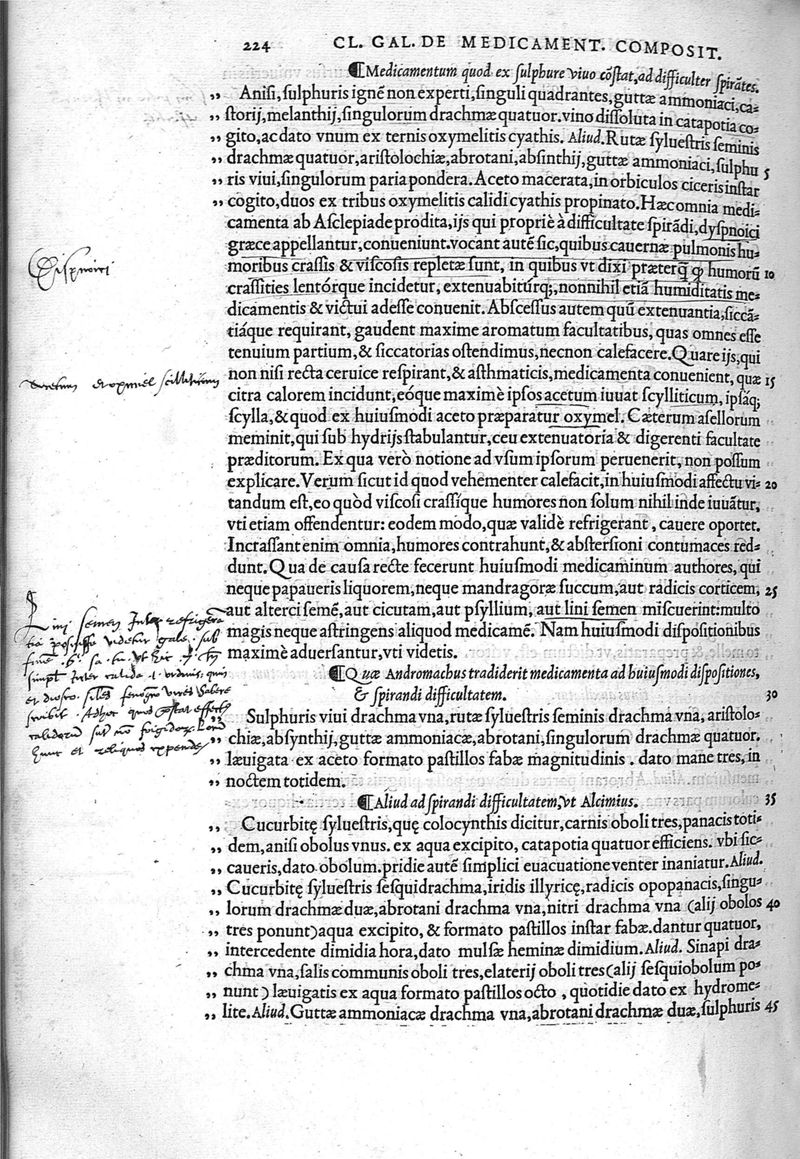 224 CL. GAL. DE MEDICAMENT. COMPOSIT.
¶Medicamentum quod ex sulphure viuo cõstat, ad difficulter spirãtes.
„ Anisi, sulphuris ignẽ non experti, singuli quadrantes, guttæ ammoniaci, ca-
„ storij, melanthij, singulorum drachmæ quatuor. vino dissoluta in catapotia co-
„ gito, ac dato vnum ex ternis oxymelitis cyathis. Aliud. Rutæ syluestris seminis
„ drachmæ quatuor, aristolochiæ, abrotani, absinthij, guttæ ammoniaci, sulphu 5
„ ris viui, singulorum paria pondera. Aceto macerata, in orbiculos ciceris instar
„ cogito, duos ex tribus oxymelitis calidi cyathis propinato. Hæc omnia medi-
camenta ab Asclepiade prodita, ijs qui propriè à difficultate spirãdi, dyspnoici
græce appellantur, conueniunt. vocant autẽ sic, quibus cauernæ pulmonis hu-
Dispnoici
moribus crassis & viscosis repletæ sunt, in quibus vt dixi præterq̃ ꝙ humorũ 10
crassities lentórque incidetur, extenuabitúrq;, nonnihil etiã humiditatis me-
dicamentis & victui adesse conuenit. Abscessus autem quũ extenuantia, siccã-
tiáque requirant, gaudent maxime aromatum facultatibus, quas omnes esse
tenuium partium, & siccatorias ostendimus, necnon calefacere. Quare ijs, qui
non nisi recta ceruice respirant, & asthmaticis, medicamenta conuenient, quæ 15
oxymiel scilliticum
citra calorem incidunt, eóque maximè ipsos acetum iuuat scylliticum, ipsáq;
scylla, & quod ex huiusmodi aceto præparatur oxymel. Cæterum asellorum
meminit, qui sub hydrijs stabulantur, ceu extenuatoria & digerenti facultate
præditorum. Ex qua verò notione ad vsum ipsorum peruenerit, non possum
explicare. Verum sicut id quod vehementer calefacit, in huiusmodi affectu vi- 20
tandum est, eo quòd viscosi crassíque humores non solum nihil inde iuuãtur,
vti etiam offendentur: eodem modo, quæ validè refrigerant, cauere oportet.
Incrassant enim omnia, humores contrahunt, & abstersioni contumaces red-
dunt. Qua de causa recte fecerunt huiusmodi medicaminum authores, qui
neque papaueris liquorem, neque mandragoræ succum, aut radicis corticem, 25
aut alterci semẽ, aut cicutam, aut psyllium, aut lini semen miscuerint: multo
magis neque astringens aliquod medicamẽ. Nam huiusmodi dispositionibus
maximè aduersantur, vti videtis.
Lini semen Inter refrigera
videtur gale.
¶Quæ Andromachus tradiderit medicamenta ad huiusmodi dispositiones,
& spirandi difficultatem. 30
„ Sulphuris viui drachma vna, rutæ syluestris seminis drachma vna, aristolo-
„ chiæ, absynthij, guttæ ammoniacæ, abrotani, singulorum drachmæ quatuor,
„ læuigata ex aceto formato pastillos fabæ magnitudinis. dato mane tres, in
„ noctem totidem.
¶Aliud ad spirandi difficultatem, vt Alcimius. 35
„ Cucurbitę syluestris, quę colocynthis dicitur, carnis oboli tres, panacis toti-
„ dem, anisi obolus vnus. ex aqua excipito, catapotia quatuor efficiens. vbi sic-
„ caueris, dato obolum. pridie autẽ simplici euacuatione venter inaniatur. Aliud.
„ Cucurbitę syluestris sesquidrachma, iridis illyricę, radicis opopanacis, singu-
„ lorum drachmæ duæ, abrotani drachma vna, nitri drachma vna (alij obolos 40
„ tres ponunt) aqua excipito, & formato pastillos instar fabæ. dantur quatuor,
„ intercedente dimidia hora, dato mulsæ heminæ dimidium. Aliud. Sinapi dra-
„ chma vna, salis communis oboli tres, elaterij oboli tres (alij sesquiobolum po-
„ nunt) læuigatis ex aqua formato pastillos octo, quotidie dato ex hydrome-
„ lite. Aliud. Guttæ ammoniacæ drachma vna, abrotani drachmæ duæ, sulphuris 45